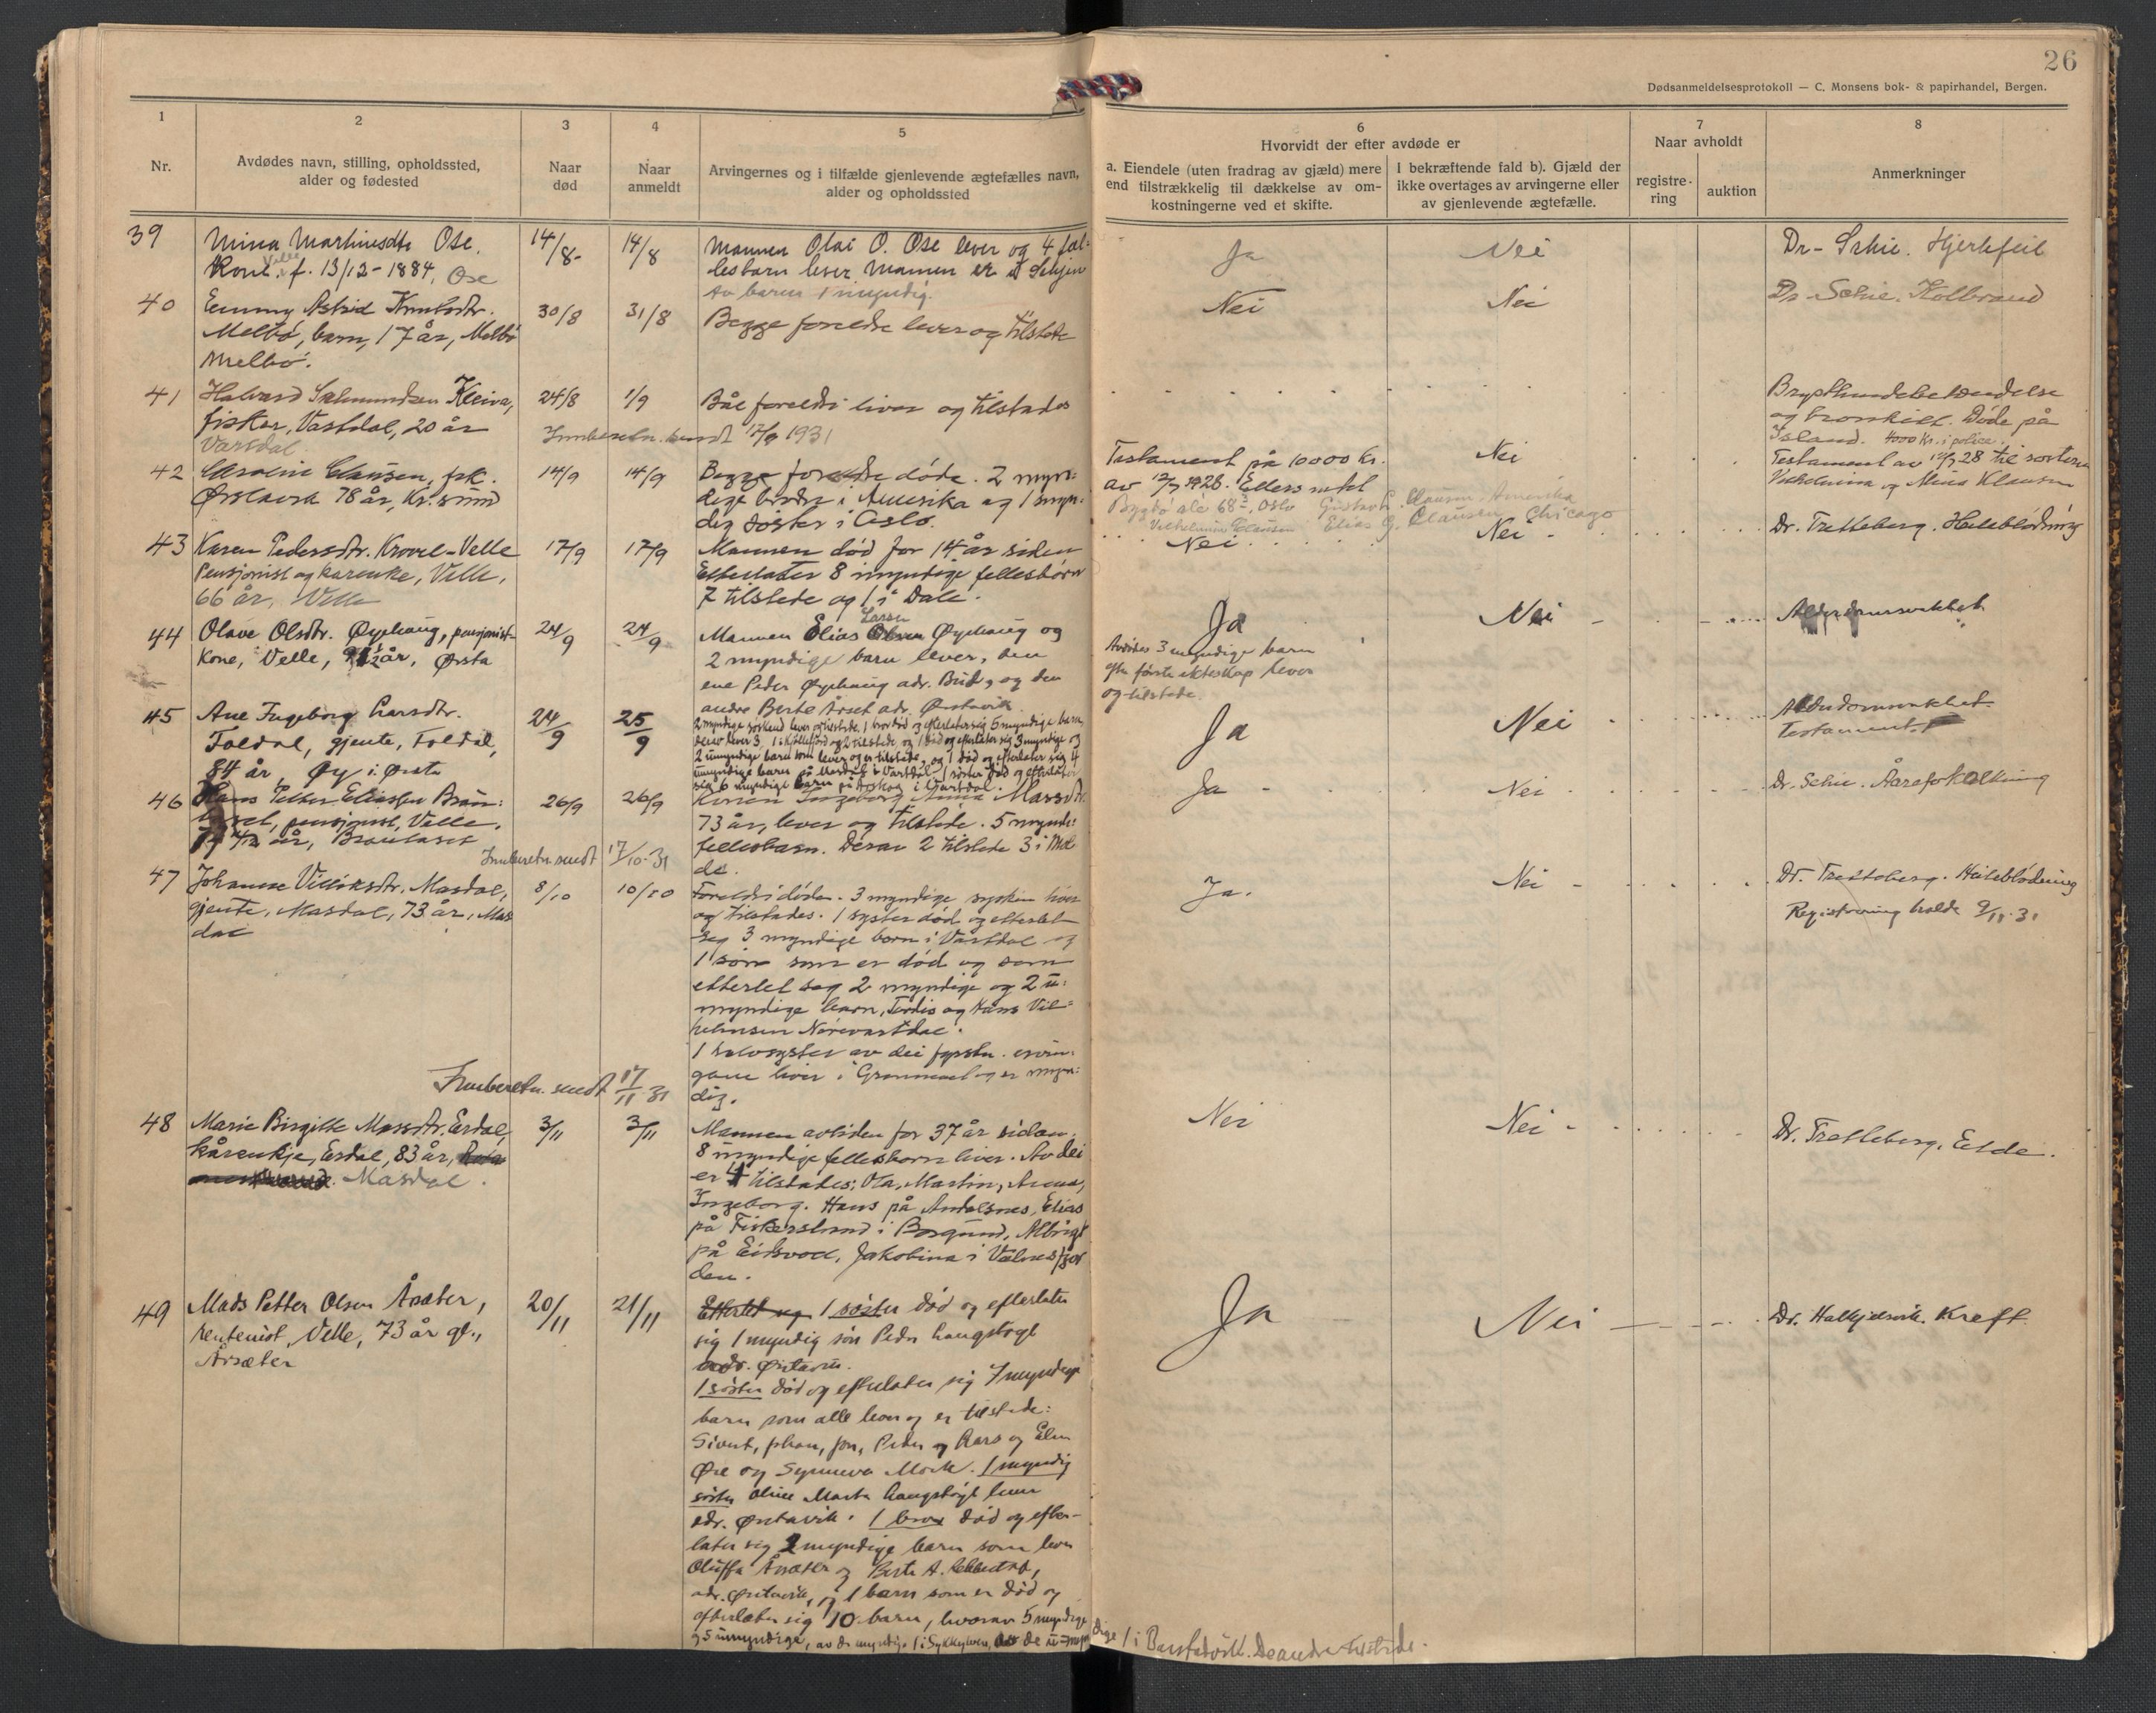 26
Dødsanmeldelsesprotokoll — C. Monsens bok- & papirhandel, Bergen.
1
Nr.
2
Avdødes navn, stilling, opholdssted,
alder og fødested
3
Naar
død
4
Naar
anmeldt
5
Arvingernes og i tilfælde gjenlevende ægtefælles navn,
alder og opholdssted
6
Hvorvidt der efter avdøde er
a. Eiendele (uten fradrag av gjæld) mere
end tilstrækkelig til dækkelse av om-
kostningerne ved et skifte.
I bekræftende fald b). Gjæld der
ikke overtages av arvingerne eller
av gjenlevende ægtefælle.
7
Naar avholdt
registre-
ring
auktion
8
Anmerkninger
39
Mina Martinusdtr Ose.
Velle
Kone. f. 13/12-1884. Ose
14/8-
14/8
Mannen Olai O. Ose lever og 4 fæl-
lesbarn lever Mannen er
Av barna 1 myndig.
Ja
Nei
Dr- Schie. Hjertefeil
40
Emmy Astrid Knutsdtr.
Melbø, barn, 17 år, Melbø
Melbø.
30/8
31/8
Begge foreldre lever og tilstede
Nei
Nei
Dr Schie. Kolbrand
41
Halvard Salmundsen Kleiva,
fisker, Vartdal, 20 år
Vartdal
24/8
1/9
Båe foreldri liver og tilstades
Innberetn. sendt 17/9 1931
Brysthindebetændelse
og bronkitt. Døde på
Island. 4000 Kr. i police.
42
Caroline Clausen, frk.
Ørstavik 78 år, Kr.sund
14/9
14/9
Begge foreldre døde. 2 myn:
dige brødre i Amerika og 1 myn:
dig søster i Oslo.
Testament på 10000 Kr.
av 12/7 1928. Ellers intet
Bygdø alle 68, Oslo Gustav G. Clausen Amerika
Vilhelmine Clausen Elias G. Clausen Chicago
Nei
Testament av 12/7 28 til søstrene
Vilhelmina og Mina Klausen
43
Karen Pedersdtr. Krovel-Velle
Pensjonist og kårenke, Velle,
66 år, Velle
17/9
17/9
Mannen død for 14 år siden
Etterlater 8 myndige fellesbørn
7 tilstede og 1 i Dale.
Nei
Nei
Dr. Tretteberg. Heileblødning
44
Olave Olsdtr. Øyehaug, pensjonist-
Kone, Velle, år, Ørsta
24/9
24/9
Larsen
Mannen Elias Olsen Øyehaug og
2 myndige barn lever, den
ene Peder Øyehaug adr. Bud, og den
andre Berte Årset adr. Ørstavik.
Ja
Avdødes 3 myndige barn
efter første ekteskap lever
og tilstede.
Nei
Alderdomssvakhet
45
Ane Ingeborg Larsdtr.
Foldal, gjente, Foldal,
84 år, Øy i Ørsta
24/9
25/9
2 myndige søskend lever og tilstede, 1 bror død og efterlater sig 5 myndige barn,
derav lever 3, 1 i Kjøllefjord og 2 tilstede, og 1 død og efterlater sig 3 myndige og
2 umyndige barn som lever og er tilstede, og 1 død og efterlater sig 4
umyndige barn på Masdal i Vartdal. 1 søster død og efterlater
sig 6 myndige barn på Årskog i Vartdal.
Ja
Nei
Alderdomssvakhet.
Testament.
46
Hans Petter Eliassen Braut:
set, pensjonist, Velle.
år, Brautaset
26/9
26/9
Konen Ingeborg Anna Massdtr.
73 år, lever og tilstede. 5 mynd:
fellesbarn. Derav 2 tilstede 3 i Mol
de.
Ja
Nei
Dr. Schie. Åreforkalkning
Innberetn. sendt 17/10-31
47
Johanne Villiksdtr. Masdal,
gjente, Masdal, 73 år, Mas
dal
8/10
10/10
Foreldri døde. 3 myndige sysken liver
og tilstades. 1 syster død og etterlet
seg 3 myndige born i Vartdal og
1 son som er død og som
etterlet seg 2 myndige og 2 u:
myndige born, Tordis og Hans Vil-
helmsen Nørevartdal.
1 halvsyster av dei fyrstn. ervin:
gane liver i og er myn:
dig.
Ja.
Nei
Dr. Tretteberg. Heileblødning
Registrering halde 9/11-31
Innberetn. sendt 17/11-31
48
Marie Birgitte Massdtr. Erdal,
kårenkje, Erdal, 83 år,
Masdal.
3/11
3/11
Mannen avliden for 37 år sidan.
8 myndige fellesborn liver. Av dei
er 4 tilstades: Ola, Martin, Anna,
Ingeborg. Hans på Andalsnes, Elias
på Fiskerstrand i Borgund, Albrigt
på Eidsvoll, Jakobina i Valnesfjor
den.
Nei
Nei
Dr. Tretteberg. Elde.
49
Mads Petter Olsen Årsæter,
rentenist, Velle, 73 år gl.,
Årsæter
20/11
21/11
Etterlet seg 1 søster død og efterlater
sig 1 myndig søn Peder Langstøyl
adr. Ørstavik.
1 søster død og efterlater sig 7 myndige
barn som alle lever og er tilstede:
Sivert, Johan, Jon, Peder og Lars og Elen
Øie og Synneva Mork. 1 myndig
søster Oline Marta Langstøyl lever
adr. Ørstavik. 1 bror død og efter-
later sig 2 myndige barn som lever
Oluffa Årsæter og Berte A.
adr. Ørstavik, og 1 barn som er død og
efterlater sig 10 barn, hvorav 5 myndige
og 5 umyndige, av de myndige 1 i Sykkylven, av de u-myndige 1 i De andre tilstede.
Ja
Nei
Dr. Halkjelsvik. Kreft